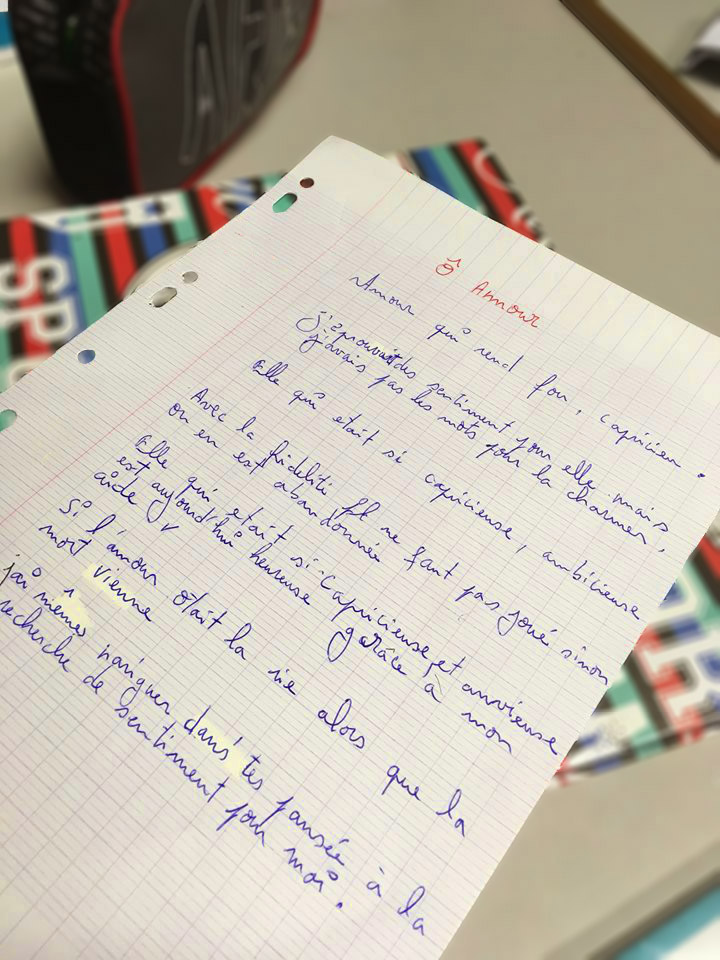 ô Amour
Amour qui rend fou, capricieu.
j'éprouvait des sentiment pour elle mais
j'avais pas les mots pour la charmer.
Elle qui etait si capicieuse, ambicieuse
Avec la fidéliti il ne faut pas joué sinon
on en est abandonnée
Elle qui etait si capricieuse et anxieuse
est aujourd'hui heureuse gârace à mon
aide
Si l'amour ôtait la vie alors que la
mort vienne
jai mêmes naviguer dans tes pansée à la
recherche de sentiment pour moi.
SP